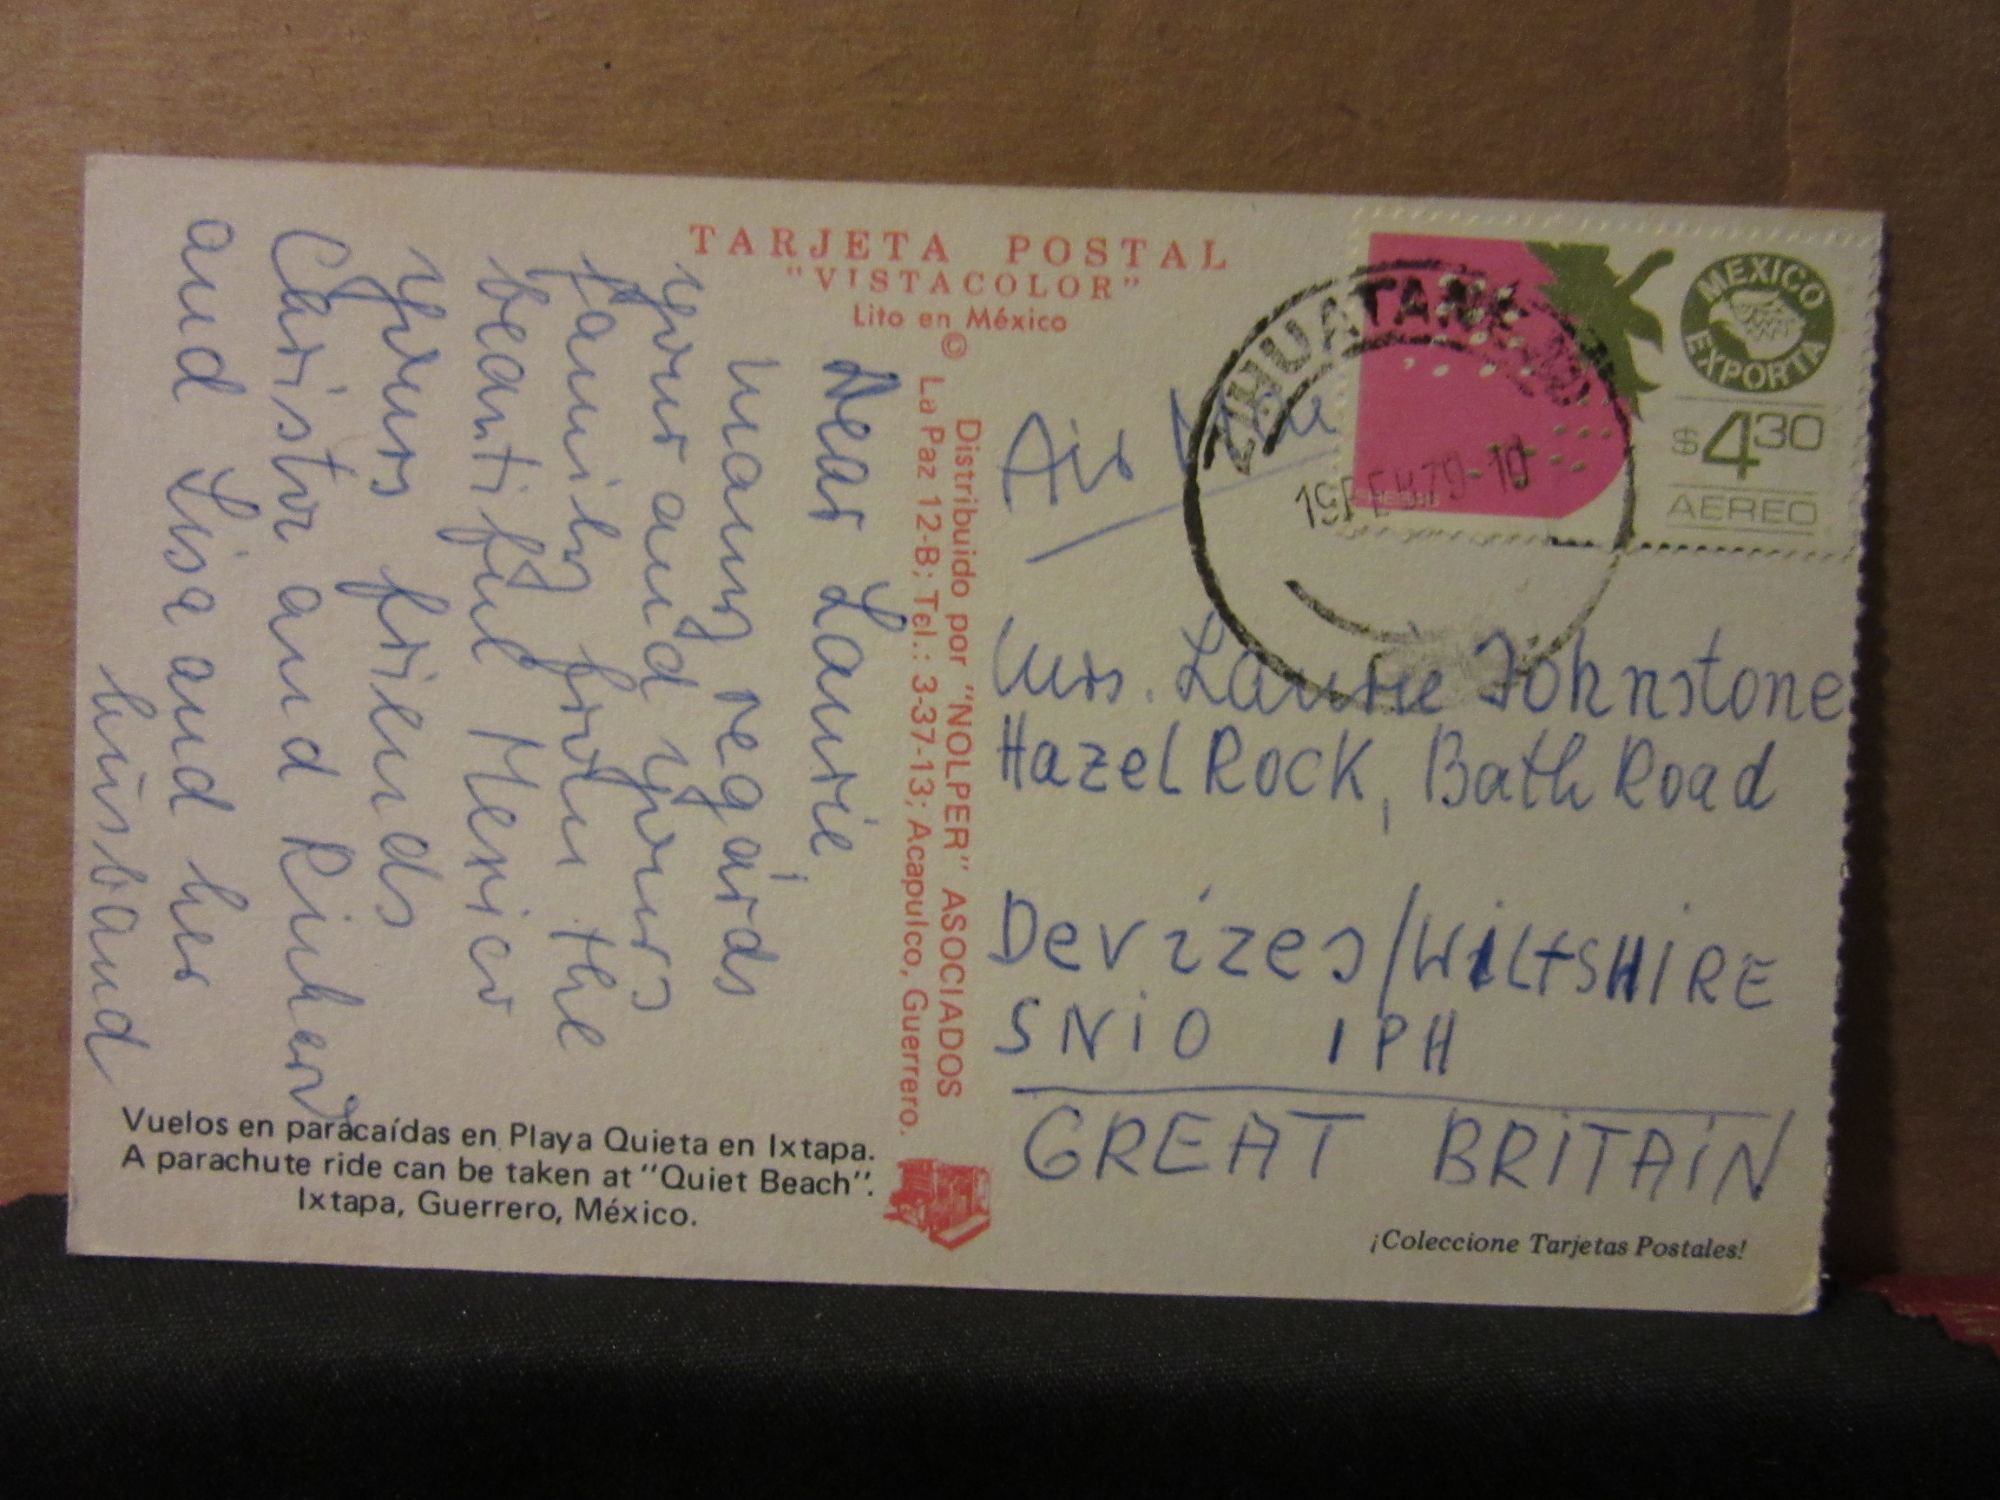 TARJETA POSTAL
"VISTACOLOR"
Lito en México
©
Distribuido por "NOLPER" ASOCIADOS
La Paz 12-B; Tel.: 3-37-13; Acapulco, Guerrero.
Dear Laurie,
many regards
your and yours
family from the
beautiful Mexico
yours friends
Christa and
and Lisa and her
husband
Vuelos en paracaídas en Playa Quieta en Ixtapa.
A parachute ride can be taken at "Quiet Beach".
Ixtapa, Guerrero, México.
MEXICO
EXPORTA
$430
AEREO
FRESAS
ZIHUATANE
Air
Mrs. Laurie Johnstone
Hazel Rock, Bath Road
Devizes/WiLtSHiRE
SNiO 1PH
GREAT BRiTAiN
¡Coleccione Tarjetas Postales!